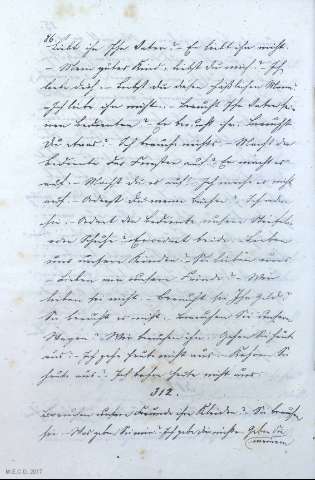 86
Liebt ihn Ihr Vater? – Er liebt ihn nicht.
– Mein gutes Kind, liebst du mich? – Ich
liebe dich. – Liebst du diesen häßlichen Mann?
– Ich liebe ihn nicht. – Braucht Ihr Vater sei-
nen Bedienten? Er braucht ihn. Brauchst
Du etwas? Ich brauche nichts. – Macht der
Bediente das Fenster auf? Er macht es
auf. – Machst du es auf? Ich mache es nicht
auf. – Ordnest du meine Bücher? Ich ordne
sie. – Ordnet der Bediente unsere Stiefel
oder Schuhe? Er ordnet beide. Lieben
uns unsere Kinder? Sie lieben uns.
– Lieben wir unsere Feinde? Wir
lieben sie nicht. – Braucht Ihr Geld?
Sie brauchen es nicht. Brauchen Sie Ihren
Wagen? Wir brauchen ihn. Gehen Sie heute
aus? Ich gehe heute nicht aus. –
heute aus? Ich heute nicht aus.
312.
unsere Freunde ihre Kleider? Sie brauchen
sie. – Was geben Sie mir? Ich gebe dir nichts. Geben Sie
meinem
M.E.C.D. 2017